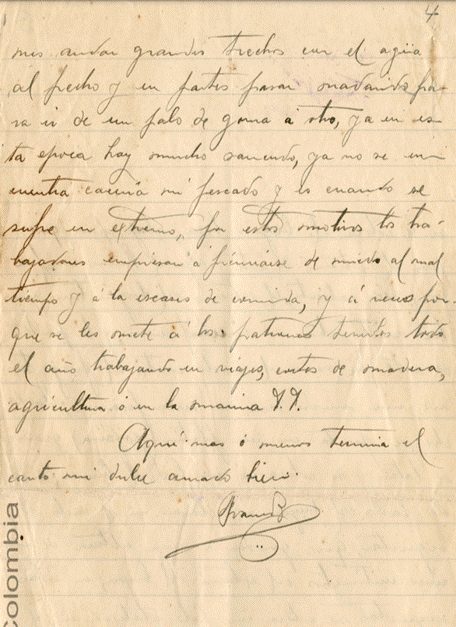 4
mos andar grandes trechos con el agua
al pecho y en partes pasar nadando pa-
ra ir de un palo de goma á otro, ya en es-
ta epoca hay mucho zancudo, ya no se en-
cuentra caceria ni pescado y es cuando se
sufre en extremo, por estos motivos los tra-
bajadores empiezan á de miedo al mal
tiempo y á la escases de comida, y á veces por-
que se les mete á los patrones tenerlos todo
el año trabajando en viajes, cortes de madera,
agricultura ó en la misma
Aquí mas ó menos termina el
canto mi dulce amado bien.
Colombia